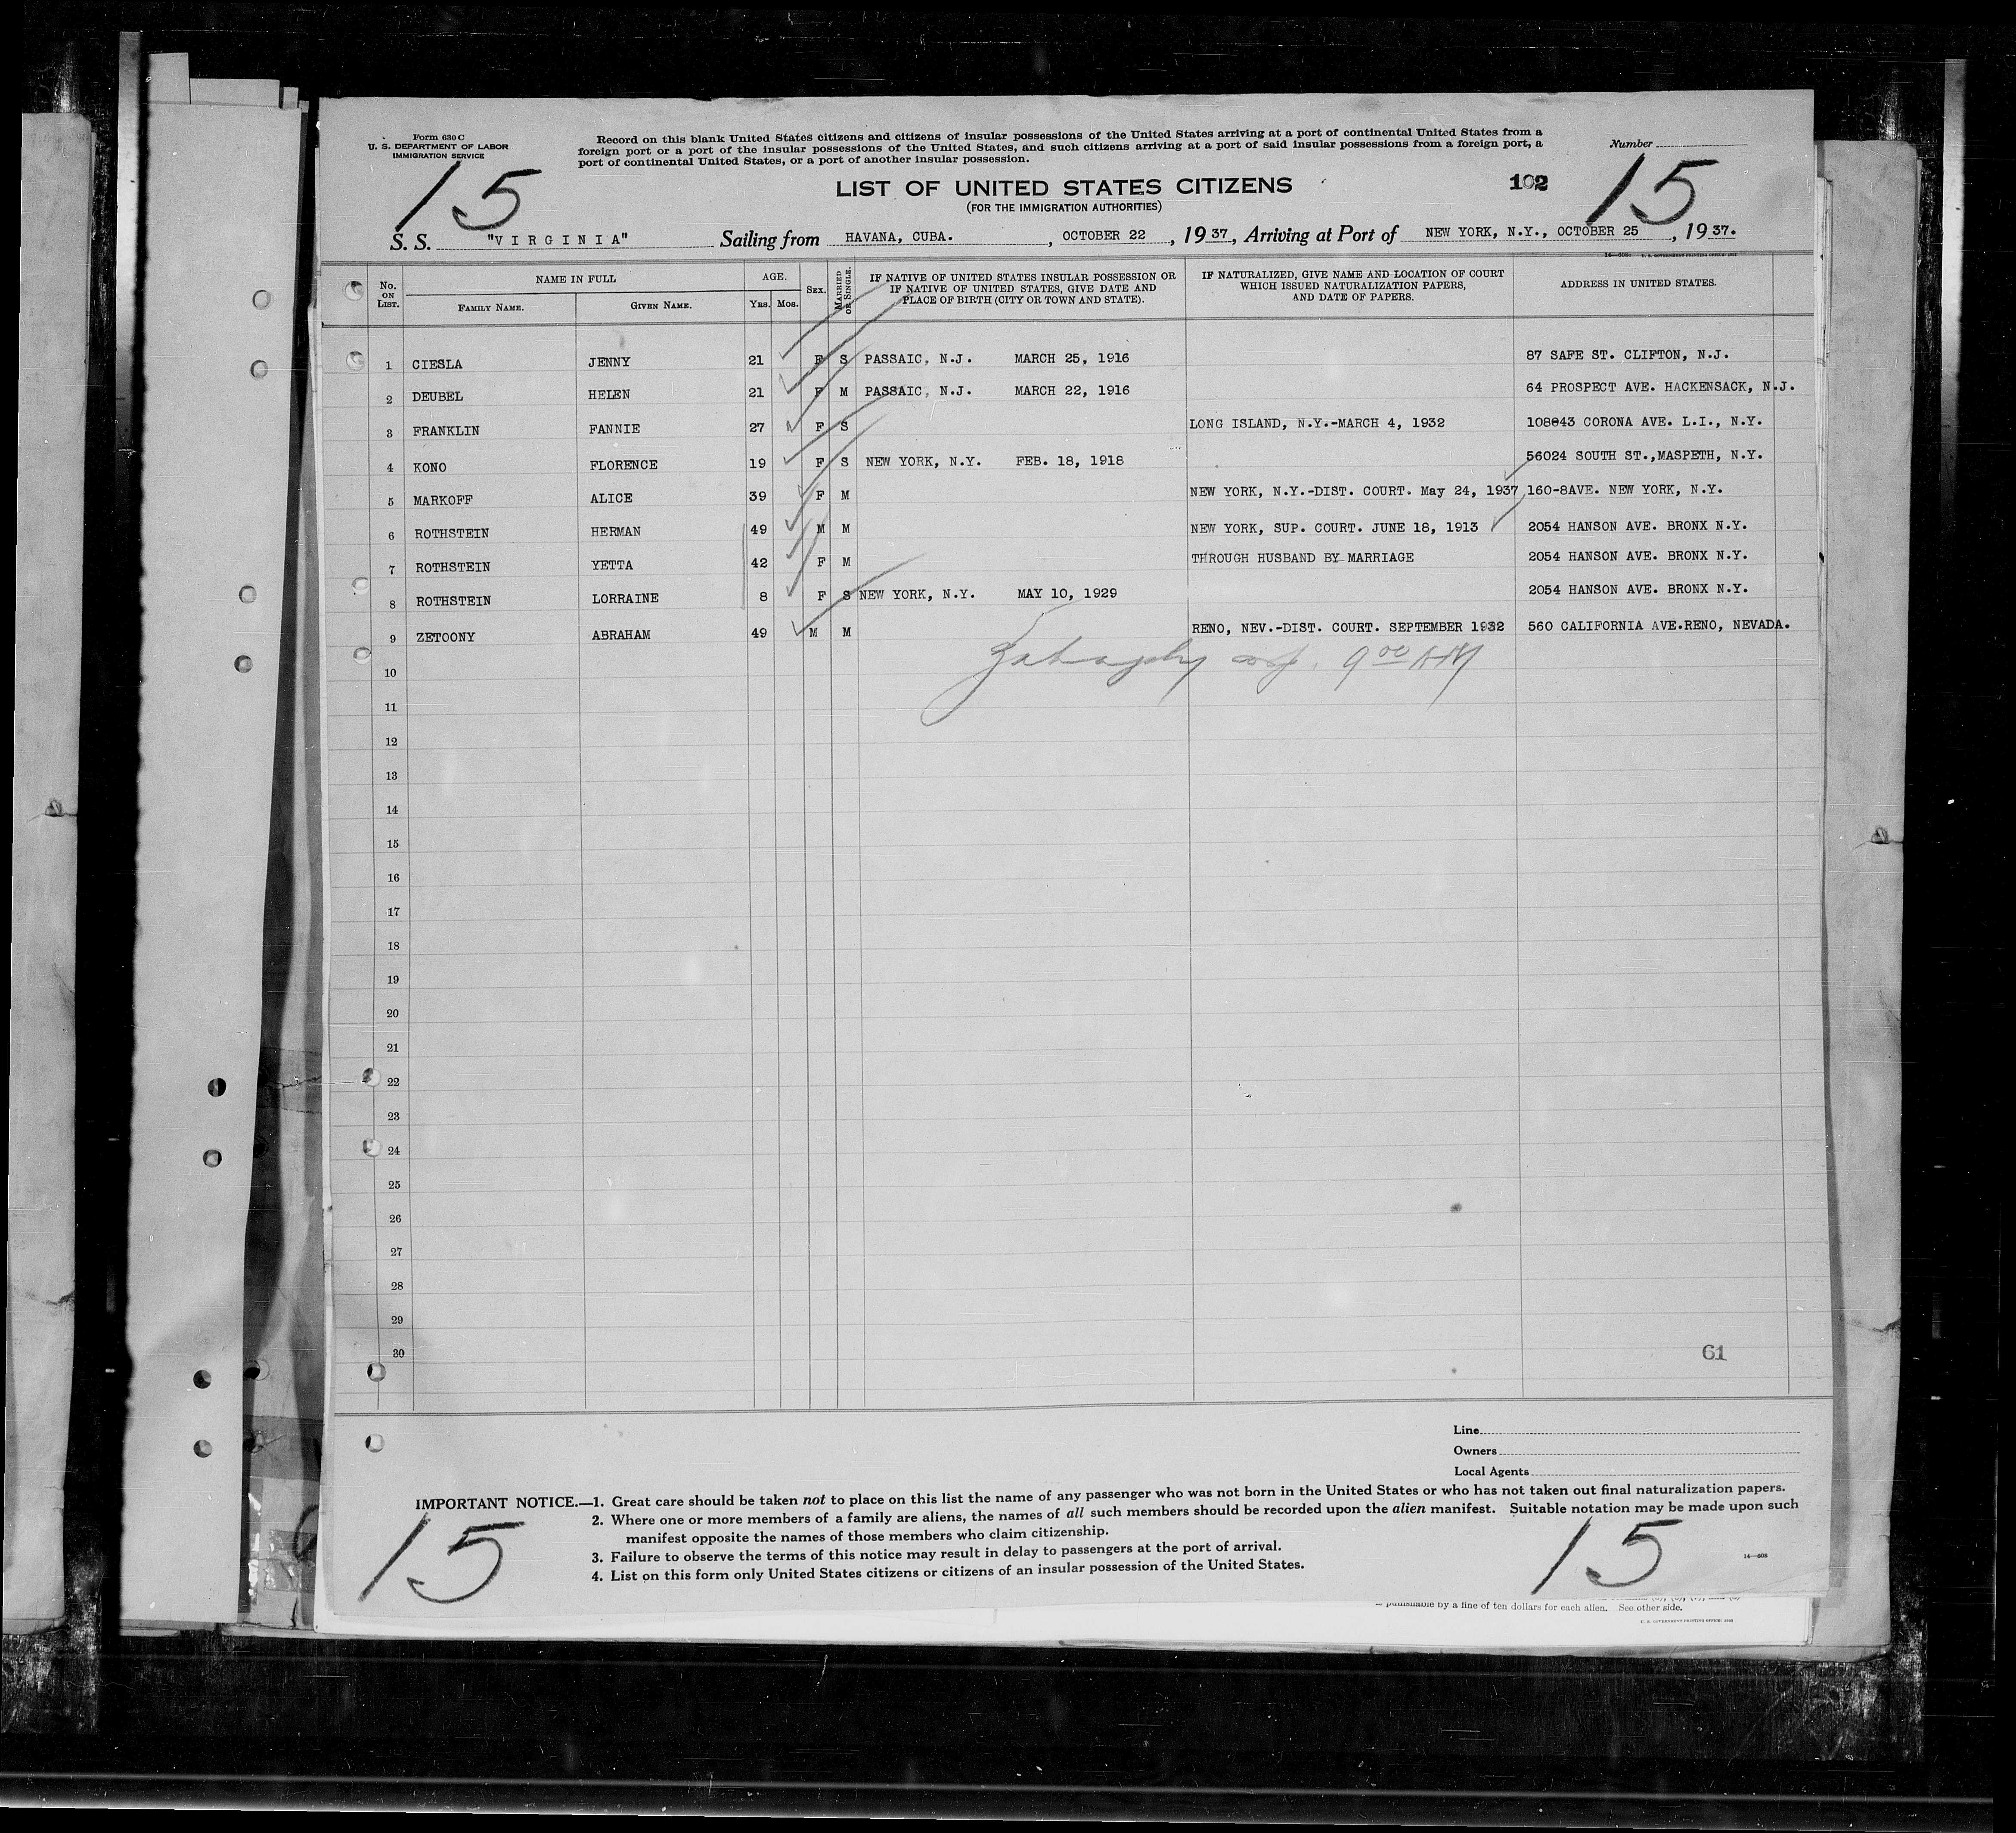 Form 630 C
U. S. DEPARTMENT OF LABOR
IMMIGRATION SERVICE
Record on this blank United States citizens and citizens of insular possessions of the United States arriving at a port of continental United States from a
foreign port or a port of the insular possessions of the United States, and such citizens arriving at a port of said insular possessions from a foreign port, a
port of continental United States, or a port of another insular possession.
Number
15
15
LIST OF UNITED STATES CITIZENS
(FOR THE IMMIGRATION AUTHORITIES)
102
S. S. "VIRGINIA" Sailing from HAVANA, CUBA. , OCTOBER 22 , 1937, Arriving at Port of NEW YORK, N.Y., OCTOBER 25 , 1937.
No. ON LIST. NAME IN FULL FAMILY NAME. GIVEN NAME. AGE. YRS. MOS. SEX. MARRIED OR SINGLE. IF NATIVE OF UNITED STATES INSULAR POSSESSION OR IF NATIVE OF UNITED STATES, GIVE DATE AND PLACE OF BIRTH (CITY OR TOWN AND STATE). IF NATURALIZED, GIVE NAME AND LOCATION OF COURT WHICH ISSUED NATURALIZATION PAPERS, AND DATE OF PAPERS. ADDRESS IN UNITED STATES.
1 CIESLA JENNY 21 F S PASSAIC, N.J. MARCH 25, 1916 87 SAFE ST. CLIFTON, N.J.
2 DEUBEL HELEN 21 F M PASSAIC, N.J. MARCH 22, 1916 64 PROSPECT AVE. HACKENSACK, N.J.
3 FRANKLIN FANNIE 27 F S LONG ISLAND, N.Y.-MARCH 4, 1932 108043 CORONA AVE. L.I., N.Y.
4 KONO FLORENCE 19 F S NEW YORK, N.Y. FEB. 18, 1918 56024 SOUTH ST.,MASPETH, N.Y.
5 MARKOFF ALICE 39 F M NEW YORK, N.Y.-DIST. COURT. May 24, 1937 160-8AVE. NEW YORK, N.Y.
6 ROTHSTEIN HERMAN 49 M M NEW YORK, SUP. COURT. JUNE 18, 1913 2054 HANSON AVE. BRONX N.Y.
7 ROTHSTEIN YETTA 42 F M THROUGH HUSBAND BY MARRIAGE 2054 HANSON AVE. BRONX N.Y.
8 ROTHSTEIN LORRAINE 8 F S NEW YORK, N.Y. MAY 10, 1929 2054 HANSON AVE. BRONX N.Y.
9 ZETOONY ABRAHAM 49 M M RENO, NEV.-DIST. COURT. SEPTEMBER 1932 560 CALIFORNIA AVE.RENO, NEVADA.
9 00 AM
10
11
12
13
14
15
16
17
18
19
20
21
22
23
24
25
26
27
28
29
30
61
Line
Owners
Local Agents
IMPORTANT NOTICE.—1. Great care should be taken not to place on this list the name of any passenger who was not born in the United States or who has not taken out final naturalization papers.
2. Where one or more members of a family are aliens, the names of all such members should be recorded upon the alien manifest. Suitable notation may be made upon such
manifest opposite the names of those members who claim citizenship.
3. Failure to observe the terms of this notice may result in delay to passengers at the port of arrival.
4. List on this form only United States citizens or citizens of an insular possession of the United States.
15
15
14—808
punishable by a fine of ten dollars for each alien. See other side.
U. S. GOVERNMENT PRINTING OFFICE